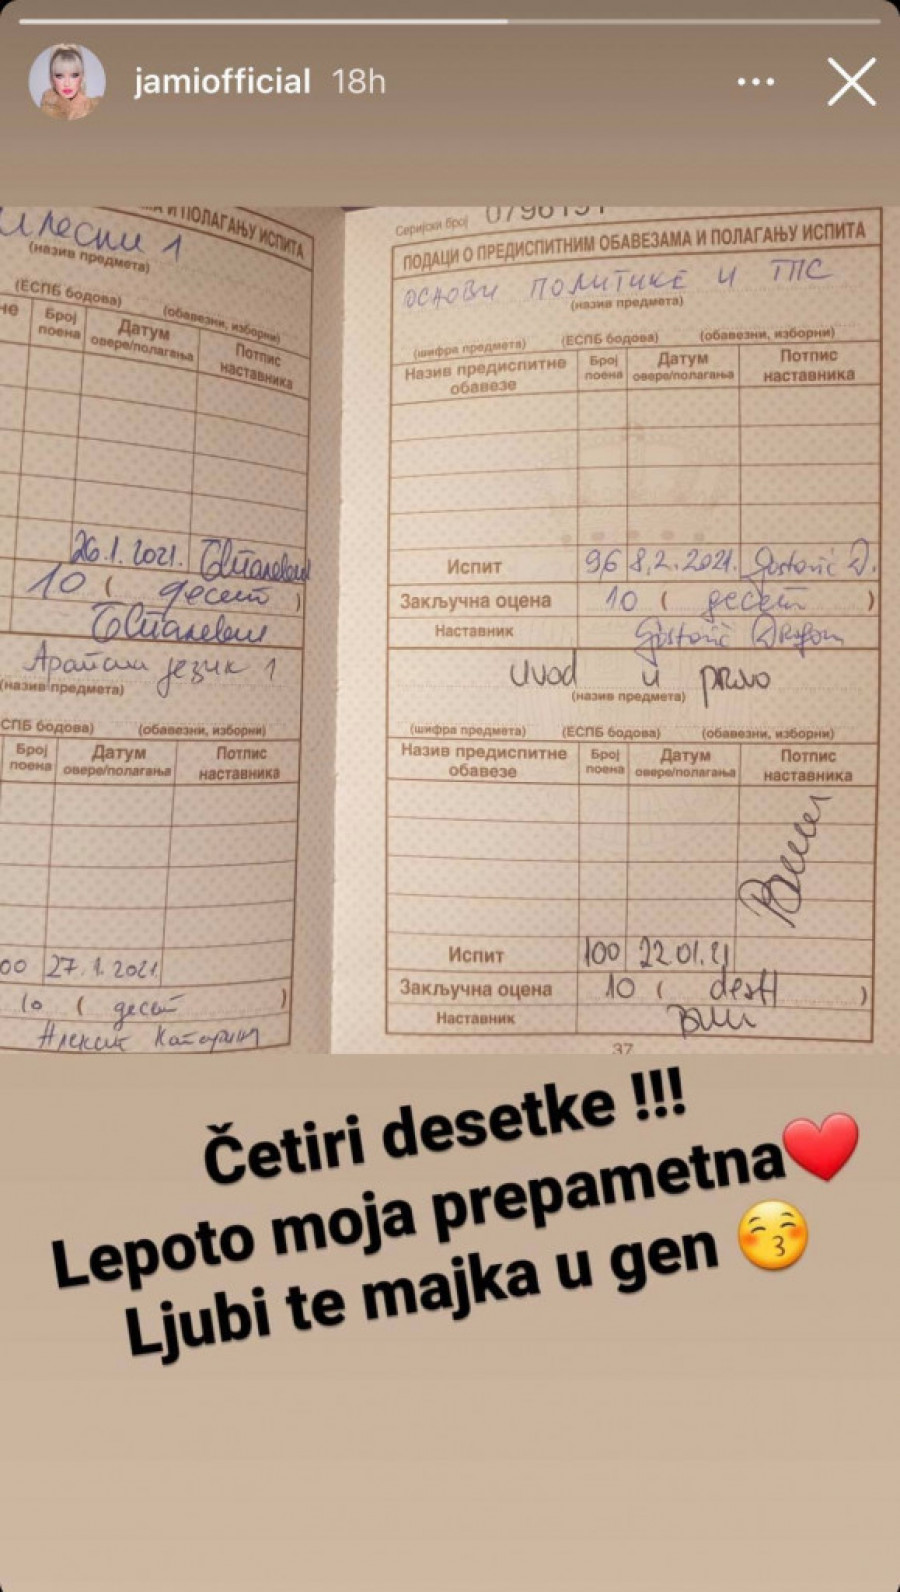 jamiofficial 18h
А И ПОЛАГАЊУ ИСПИТА
(назив предмета)
(ЕСПБ бодова) (обавезни, изборни)
не Број поена Датум овере/полагања Потпис наставника
26.1.2021.
10 ( десет )
језик 1
(назив предмета)
СПБ бодова) (обавезни, изборни)
Број поена Датум овере/полагања Потпис наставника
00 27.1.2021
10 ( десет )
Серијски број 0796191
ПОДАЦИ О ПРЕДИСПИТНИМ ОБАВЕЗАМА И ПОЛАГАЊУ ИСПИТА
основи политике и ТПС
(назив предмета)
(шифра предмета) (ЕСПБ бодова) (обавезни, изборни)
Назив предиспитне обавезе Број поена Датум овере/полагања Потпис наставника
Испит 96 8.2.2021.
Закључна оцена 10 ( десет )
Наставник
Uvod u pravo
(назив предмета)
(шифра предмета) (ЕСПБ бодова) (обавезни, изборни)
Назив предиспитне обавезе Број поена Датум овере/полагања Потпис наставника
Испит 100 22.01.21
Закључна оцена 10 ( deset )
Наставник
37
Četiri desetke !!!
Lepoto moja prepametna
Ljubi te majka u gen